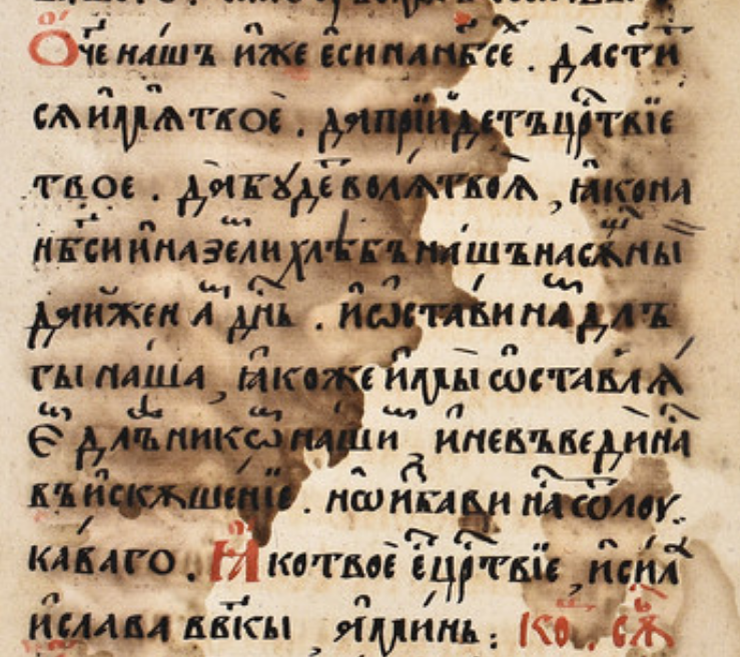 Ѻ҃че нашъ и҆же є҆си на нб҃се . да ст҃и
сѧ и҆мѧ твое . да прїидетъ цр҃твїе
твое . да бꙋде волѧ твоѧ , ꙗко на
нб҃си и҆ на земли хлѣбъ нашъ насѫщны
даи҆ж нам дн҃ь . и҆ ѡ҆стави нам длъ
гы наша , ꙗкоже и҆ мы ѡ҆ставлѧ
ем длъжникѡм нашим и не въведи на
въ и҆скѫшенїе . нѡ и҆збави на ѿ лоу
каваго . Ꙗко твое є҆ цр҃твїе , и҆ сила
и҆ слава в вѣкы а҆минь :